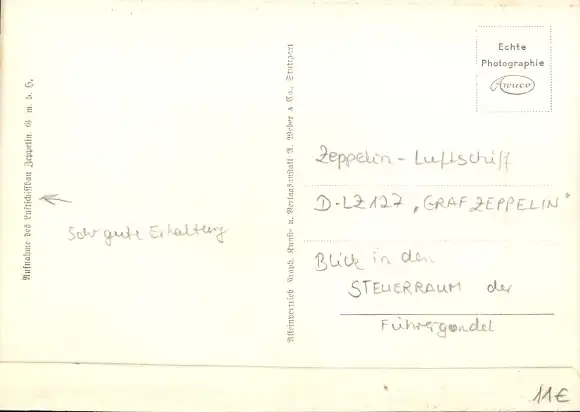 Aufnahme des Luftschiffbau Zeppelin G. m. b. H.
Sehr gute Erhaltung
Alleinvertrieb Graph. Kunst- u. Verlagsanstalt A. Weber & Co., Stuttgart
Echte
Photographie
Awuco
Zeppelin-Luftschiff
D-LZ127 „GRAF ZEPPELIN“
Blick in den
STEUERRAUM der
Führergondel
11€